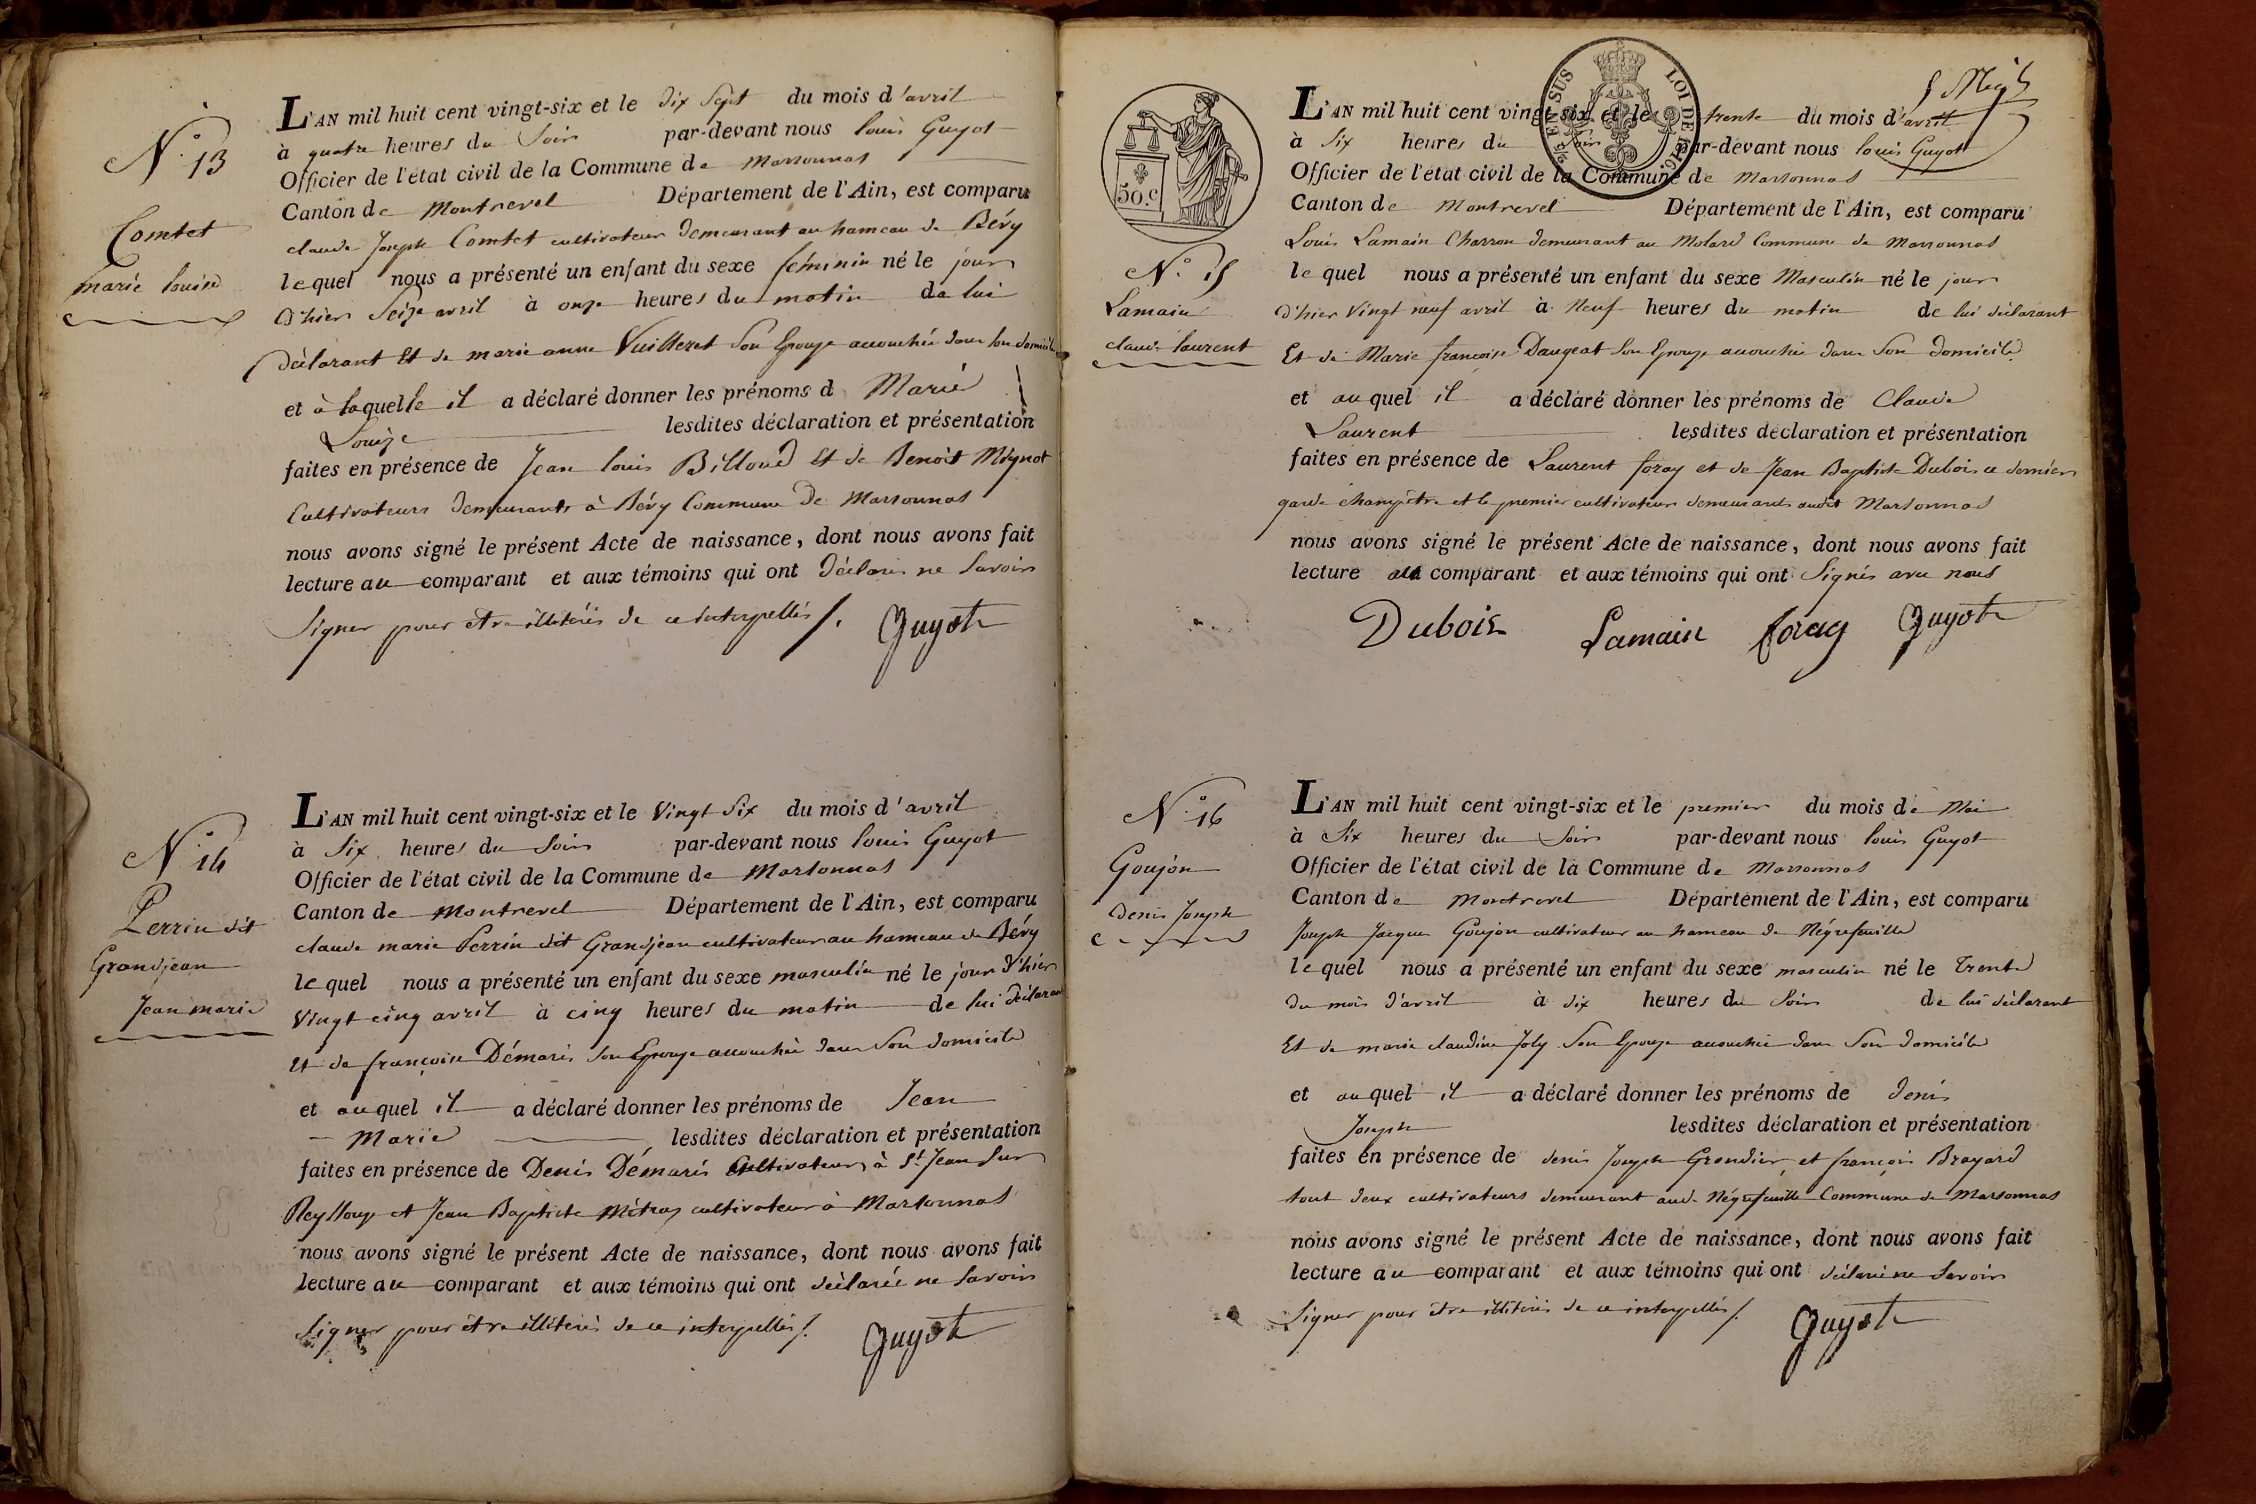 N.° 13
Comtet
marie louise
L'AN mil huit cent vingt-six et le dix sept du mois d'avril
à quatre heures du Soir par-devant nous louis Guyot
Officier de l'état civil de la Commune de Marsonnas
Canton de Montrevel Département de l'Ain, est comparu
claude Joseph Comtet cultivateur demeurant au hameau de Bévy
lequel nous a présenté un enfant du sexe féminin né le jour
d'hier Seize avril à onze heures du matin de lui
déclarant Et de marie anne Vuilleret Son Epouse accouchée dans son domicile
et à laquelle il a déclaré donner les prénoms d Marie
Louise lesdites déclaration et présentation
faites en présence de Jean louis Billoud Et de Benoit Mignot
Cultivateurs demeurants à Bévy Commune De Marsonnas
nous avons signé le présent Acte de naissance, dont nous avons fait
lecture au comparant et aux témoins qui ont déclarés ne Savoir
Signer pour être illitérés de ce interpellés /. Guyot
N.° 14
Perrin dit
Grandjean
Jean marie
L'AN mil huit cent vingt-six et le Vingt Six du mois d'avril
à Six heures du Soir par-devant nous louis Guyot
Officier de l'état civil de la Commune de Marsonnas
Canton de Montrevel Département de l'Ain, est comparu
claude marie Perrin dit Grandjean cultivateur au hameau de Bévy
lequel nous a présenté un enfant du sexe masculin né le jour d'hier
Vingt cinq avril à cinq heures du matin de lui déclarant
Et de françoise Démaris Son Epouse accouchée dans Son domicile
et auquel il a déclaré donner les prénoms de Jean
Marie lesdites déclaration et présentation
faites en présence de Denis Démaris Cultivateur à St Jean Sur
Reyssouze et Jean Baptiste Mitras cultivateur à Marsonnas
nous avons signé le présent Acte de naissance, dont nous avons fait
lecture au comparant et aux témoins qui ont déclarée ne Savoir
Signer pour être illitérés de ce interpellés /. Guyot
50.c
EN SUS
LOI DE
N.° 15
Lamain
claude laurent
L'AN mil huit cent vingt-six et le trente du mois d'avril
à Six heures du Soir par-devant nous louis Guyot
Officier de l'état civil de la Commune de Marsonnas
Canton de Montrevel Département de l'Ain, est comparu
Louis Lamain Charron demeurant au Molard Commune de Marsonnas
lequel nous a présenté un enfant du sexe Masculin né le jour
d'hier Vingt neuf avril à Neuf heures du matin de lui déclarant
Et de Marie françoise Daugeat Son Epouse accouchée dans Son domicile
et auquel il a déclaré donner les prénoms de Claude
Laurent lesdites déclaration et présentation
faites en présence de Laurent foray et de Jean Baptiste Dubois ce dernier
garde champêtre et le premier cultivateur demeurants audit Marsonnas
nous avons signé le présent Acte de naissance, dont nous avons fait
lecture au comparant et aux témoins qui ont Signés avec nous
Dubois Lamain foray Guyot
N.° 16
Goujon
Denis Joseph
L'AN mil huit cent vingt-six et le premier du mois de Mai
à Six heures du Soir par-devant nous louis Guyot
Officier de l'état civil de la Commune de Marsonnas
Canton de Montrevel Département de l'Ain, est comparu
Joseph Jacques Goujon cultivateur au hameau de Négrefeuille
lequel nous a présenté un enfant du sexe masculin né le trente
du mois d'avril à six heures du Soir de lui déclarant
Et de marie claudine Joly Son Epouse accouchée dans Son domicile
et auquel il a déclaré donner les prénoms de denis
Joseph lesdites déclaration et présentation
faites en présence de denis Joseph Grondier et françois Brayard
tout deux cultivateurs demeurant aud. Négrefeuille Commune de Marsonnas
nous avons signé le présent Acte de naissance, dont nous avons fait
lecture au comparant et aux témoins qui ont déclaré ne Savoir
Signer pour être illitérés de ce interpellés /. Guyot